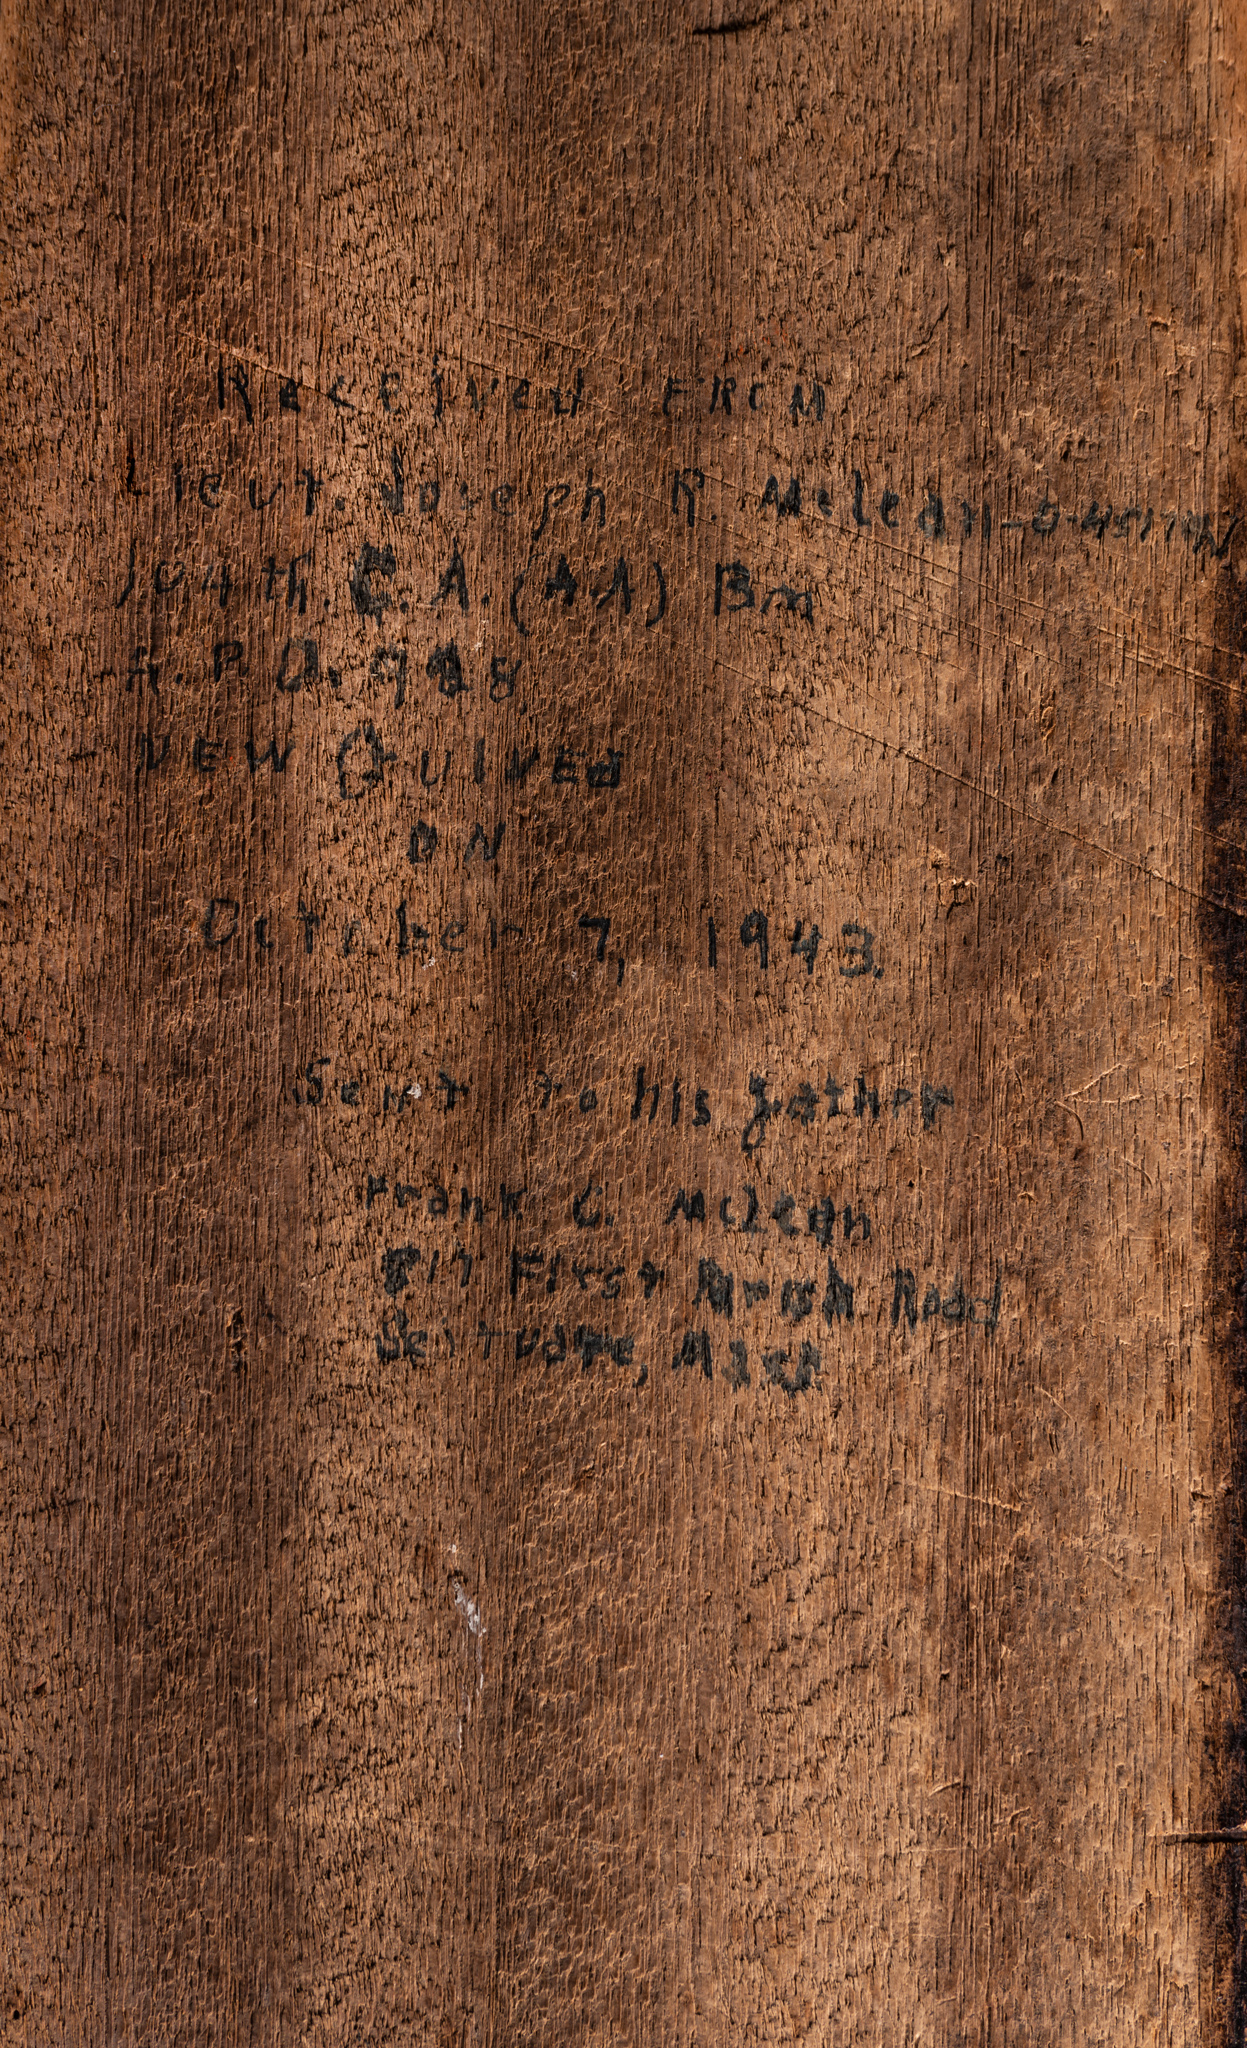 Received FROM
Lieut. Joseph R. McLean-
104th. C. A. (AA) Bn
A. P. O. 928
NEW GUINEA
ON
October 7, 1943.
Sent to his father
Frank C. McLean
817 First Parish Road
Scituate, Mass